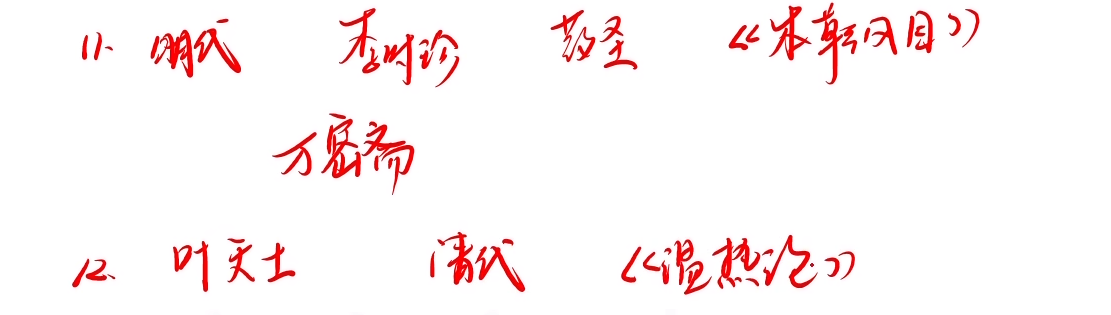 11. 明代 李时珍 药圣 《本草纲目》
万密斋
12. 叶天士 清代 《温热论》